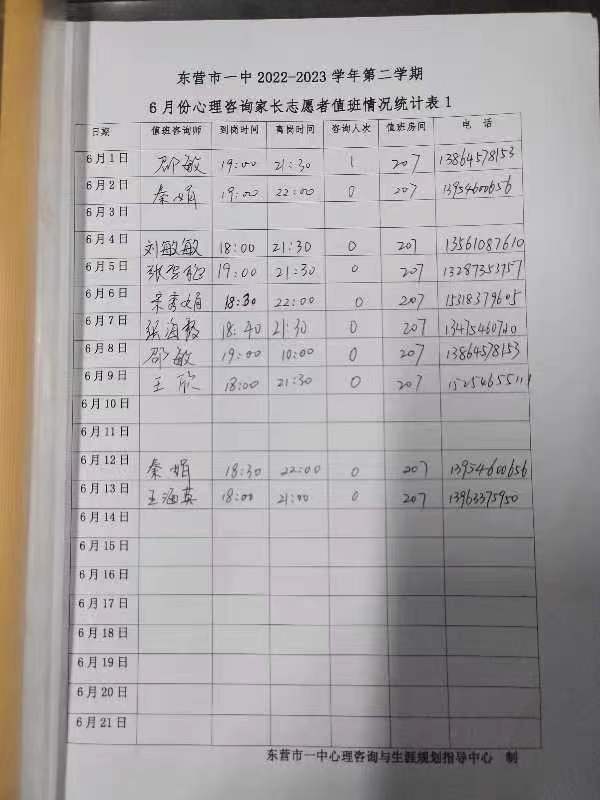 东营市一中 2022-2023 学年第二学期
6 月份心理咨询家长志愿者值班情况统计表 1
日期 值班咨询师 到岗时间 离岗时间 咨询人次 值班房间 电 话
6 月 1 日 邵敏 19:00 21:30 1 207 13864578153
6 月 2 日 秦娟 19:00 22:00 0 207 13954600656
6 月 3 日
6 月 4 日 刘敏敏 18:00 21:30 0 207 13561087610
6 月 5 日 19:00 21:30 0 207 13287353757
6 月 6 日 18:30 22:00 0 207 15318379605
6 月 7 日 18:40 21:30 0 207
6 月 8 日 邵敏 19:00 10:00 0 207 13864578153
6 月 9 日 王欣 18:00 21:30 0 207
6 月 10 日
6 月 11 日
6 月 12 日 秦娟 18:30 22:00 0 207 13954600656
6 月 13 日 王涵英 18:00 21:00 0 207 13963375950
6 月 14 日
6 月 15 日
6 月 16 日
6 月 17 日
6 月 18 日
6 月 19 日
6 月 20 日
6 月 21 日
东营市一中心理咨询与生涯规划指导中心 制